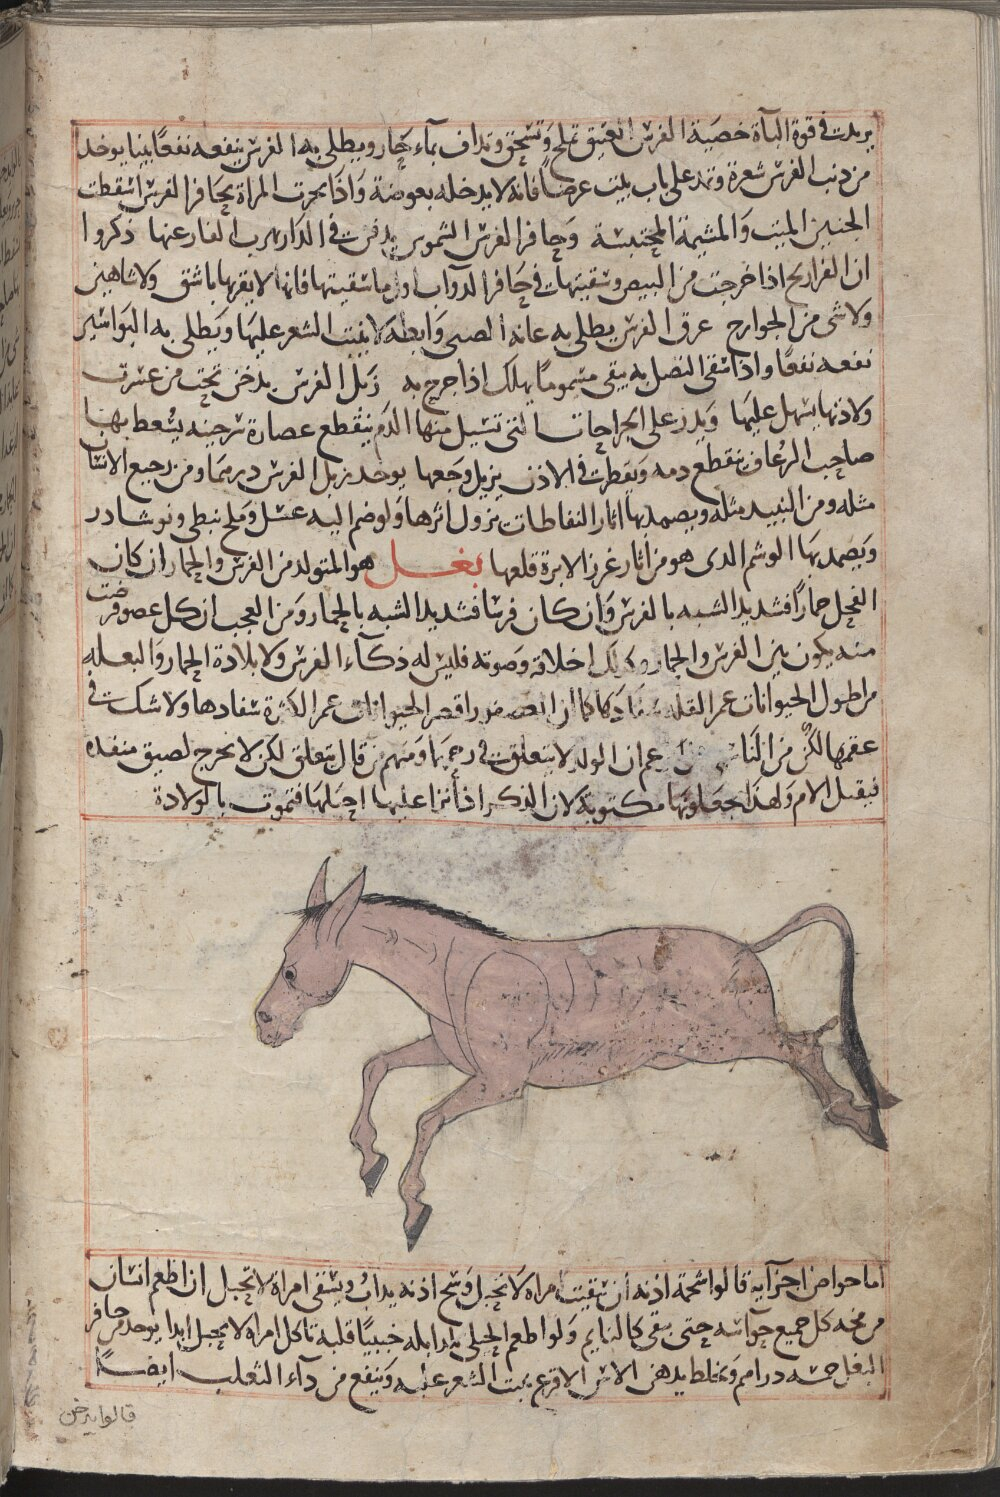 يزيد في قوة الباة خصية الفرس العتيق تملح وتسحق وتداف بماء حار ويطلى به الفرس ينفعه نفعا بينا يوخد
من ذنب الفرس شعرة وتمد على باب بيت عرضا فانه لا يدخله بعوضة واذا بخرت المراة بحافر الفرس اسقطت
الجنين الميت والمشيمة المحتبسة وحافر الفرس الشموس يدفن في الدار يهرب الفار عنها ذكروا
ان الفراريح اذا خرجت من البيض وسقيتها في حافر الدواب اول ما سقيتها فانها لا يقربها باشق ولا شاهين
ولا شى من الجوارح عرق الفرس يطلى به عانة الصبى وابطه لا ينبت الشعر عليها ويطلى به البواسير
نفعه نفعا واذا سقى النصل به يبقى مسموما يهلك اذا جرح به زبل الفرس يدخن تحت من عسرت
ولادتها يسهل عليها ويذر على الجراحات التى تسيل منها الدم ينقطع عصارة سرجينه يسعط بها
صاحب الرعاف ينقطع دمه ويقطر في الاذن يزيل وجعها يوخد زبل الفرس درهما ومن رجيع الانسان
مثله ومن النبيد مثله ويضمد بها اثار النفاطات تزول اثرها ولو ضم اليه عسل وملح نبطى ونوشادر
ويضمد بها الوشم الدى هو من اثار غرز الابرة قلعها بغل هو المتولد من الفرس والحمار ان كان
الفحل حمارا فشديد الشبه بالفرس وان كان فرسا فشديد الشبه بالحمار ومن العجب ان كل عضو فرضت
منه يكون بين الفرس والحمار وكذلك اخلاقه وصوته فليس له ذكآء الفرس ولا بلادة الحمار والبغلة
من اطول الحيوانات عمرا لقلة سفادها كما ان العصفور اقصر الحيوانات عمرا لكثرة سفادها ولا شك في
عقمها لكن من الناس من زعم ان الولد لا يتعلق في رحمها ومنهم من قال يتعلق لكن لا يخرج لضيق منفده
فيقتل الام ولهذا جعلوها مكتوبة لان الذكر اذا نزا عليها احبلها فتموت بالولادة
اما خواص اجزآيه قالوا شحمة اذنه ان سقيت امراة لا تحبل وسخ اذنه يداف ويسقى امراة لا تحبل ان اطعم انسان
من مخه كل جميع حواسه حتى يبقى كالنايم ولو اطعم الحبلى بدا بله خبيبا قلبه تاكل امراة لا تحبل ابدا يوخد من حافر
البغل خمسه دراهم ويخلط بدهن الاس الاقرع ينبت الشعر عليه وينفع من دآء الثعلب ايضا
قالوا يدخن